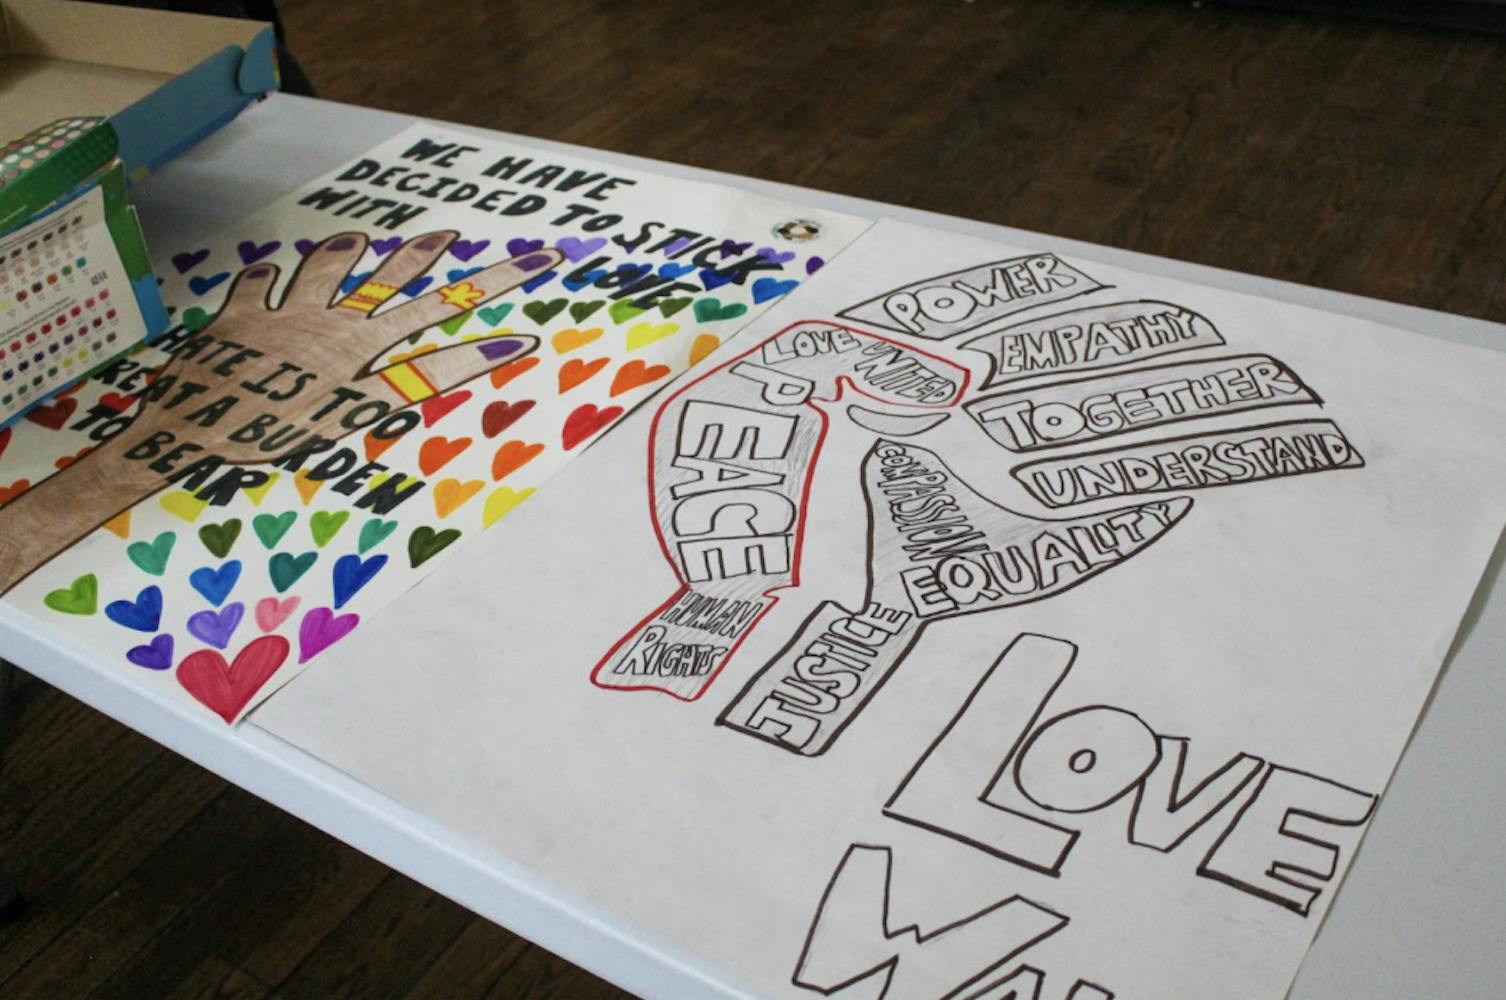 WE HAVE
DECIDED TO STICK
WITH LOVE
HATE IS TOO
GREAT A BURDEN
TO BEAR
POWER
EMPATHY
TOGETHER
UNDERSTAND
LOVE UNITED
PEACE
HUMAN
RIGHTS
COMPASSION
EQUALITY
JUSTICE
LOVE